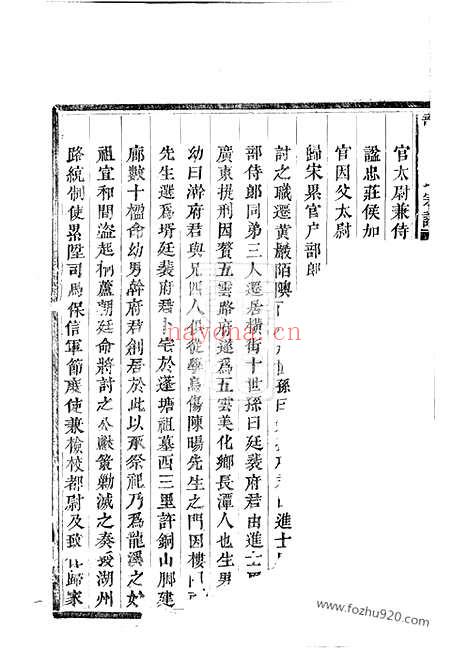 官太尉兼侍
謚忠莊侯加
官因父太尉
歸宋累官户部郎
討之職遷黄巖陌陳
部侍郎同弟三人遷居橫街十世孫曰廷裝府君由進士
廣東提刑因贅五雲路府遂爲五雲美化鄉長潭人也生男
幼曰澣府君與兄四人從學烏傷陳暘先生之門因樓
先生選爲壻廷裝府君宅於蓬塘祖墓西三里許銅山脚建
廊數十楹命幼男幹府君創居於此以承祭祀乃爲龍溪之始
祖宜和間盜起桐蘆朝廷命將討之公獻策勦滅之奏授湖州
路統制使累陞司馬保信軍節度使兼檢校都尉及致歸家
nayona.cn
www.fozhu920.com